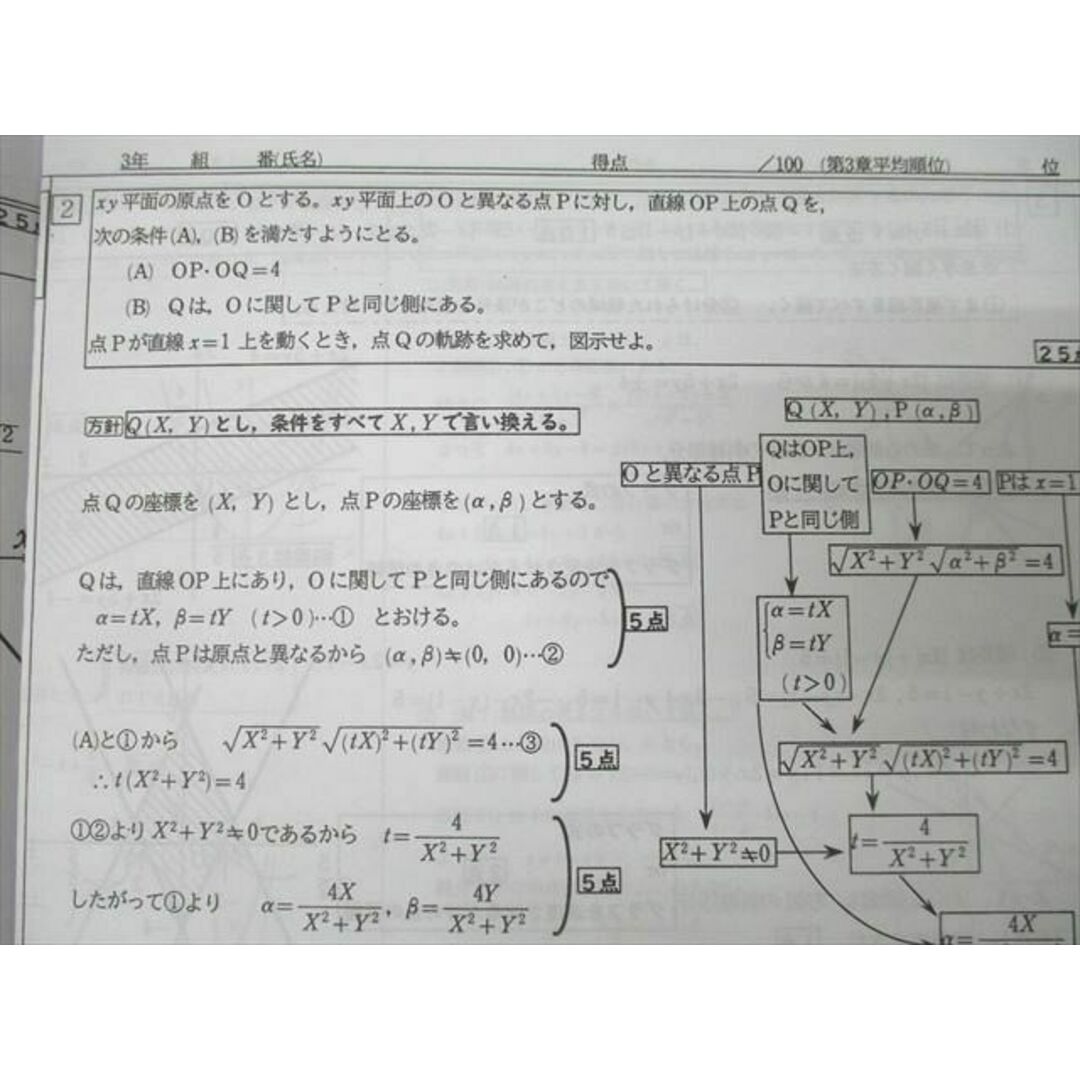 3年 組 番(氏名) 得点 /100 (第3章平均順位) 位
2
xy平面の原点をOとする。xy平面上のOと異なる点Pに対し，直線OP上の点Qを，
次の条件(A)，(B)を満たすようにとる。
(A) OP・OQ＝4
(B) Qは，Oに関してPと同じ側にある。
点Pが直線x＝1上を動くとき，点Qの軌跡を求めて，図示せよ。
25点
方針 Q(X, Y)とし，条件をすべてX，Yで言い換える。
点Qの座標を (X, Y) とし，点Pの座標を(α, β)とする。
Qは，直線OP上にあり，Oに関してPと同じ側にあるので
α＝tX, β＝tY (t＞0)…① とおける。
ただし，点Pは原点と異なるから (α, β)≠(0, 0)…②
5点
(A)と①から √(X²＋Y²) √((tX)²＋(tY)²)＝4…③
∴t(X²＋Y²)＝4
5点
①②よりX²＋Y²≠0であるから t＝4/(X²＋Y²)
したがって①より α＝4X/(X²＋Y²), β＝4Y/(X²＋Y²)
5点
Q(X, Y), P(α, β)
Oと異なる点P
QはOP上，
Oに関して
Pと同じ側
OP・OQ＝4
Pはx＝1
√(X²＋Y²) √(α²＋β²)＝4
α＝tX
β＝tY
(t＞0)
α＝
√(X²＋Y²) √((tX)²＋(tY)²)＝4
X²＋Y²≠0
t＝4/(X²＋Y²)
α＝4X